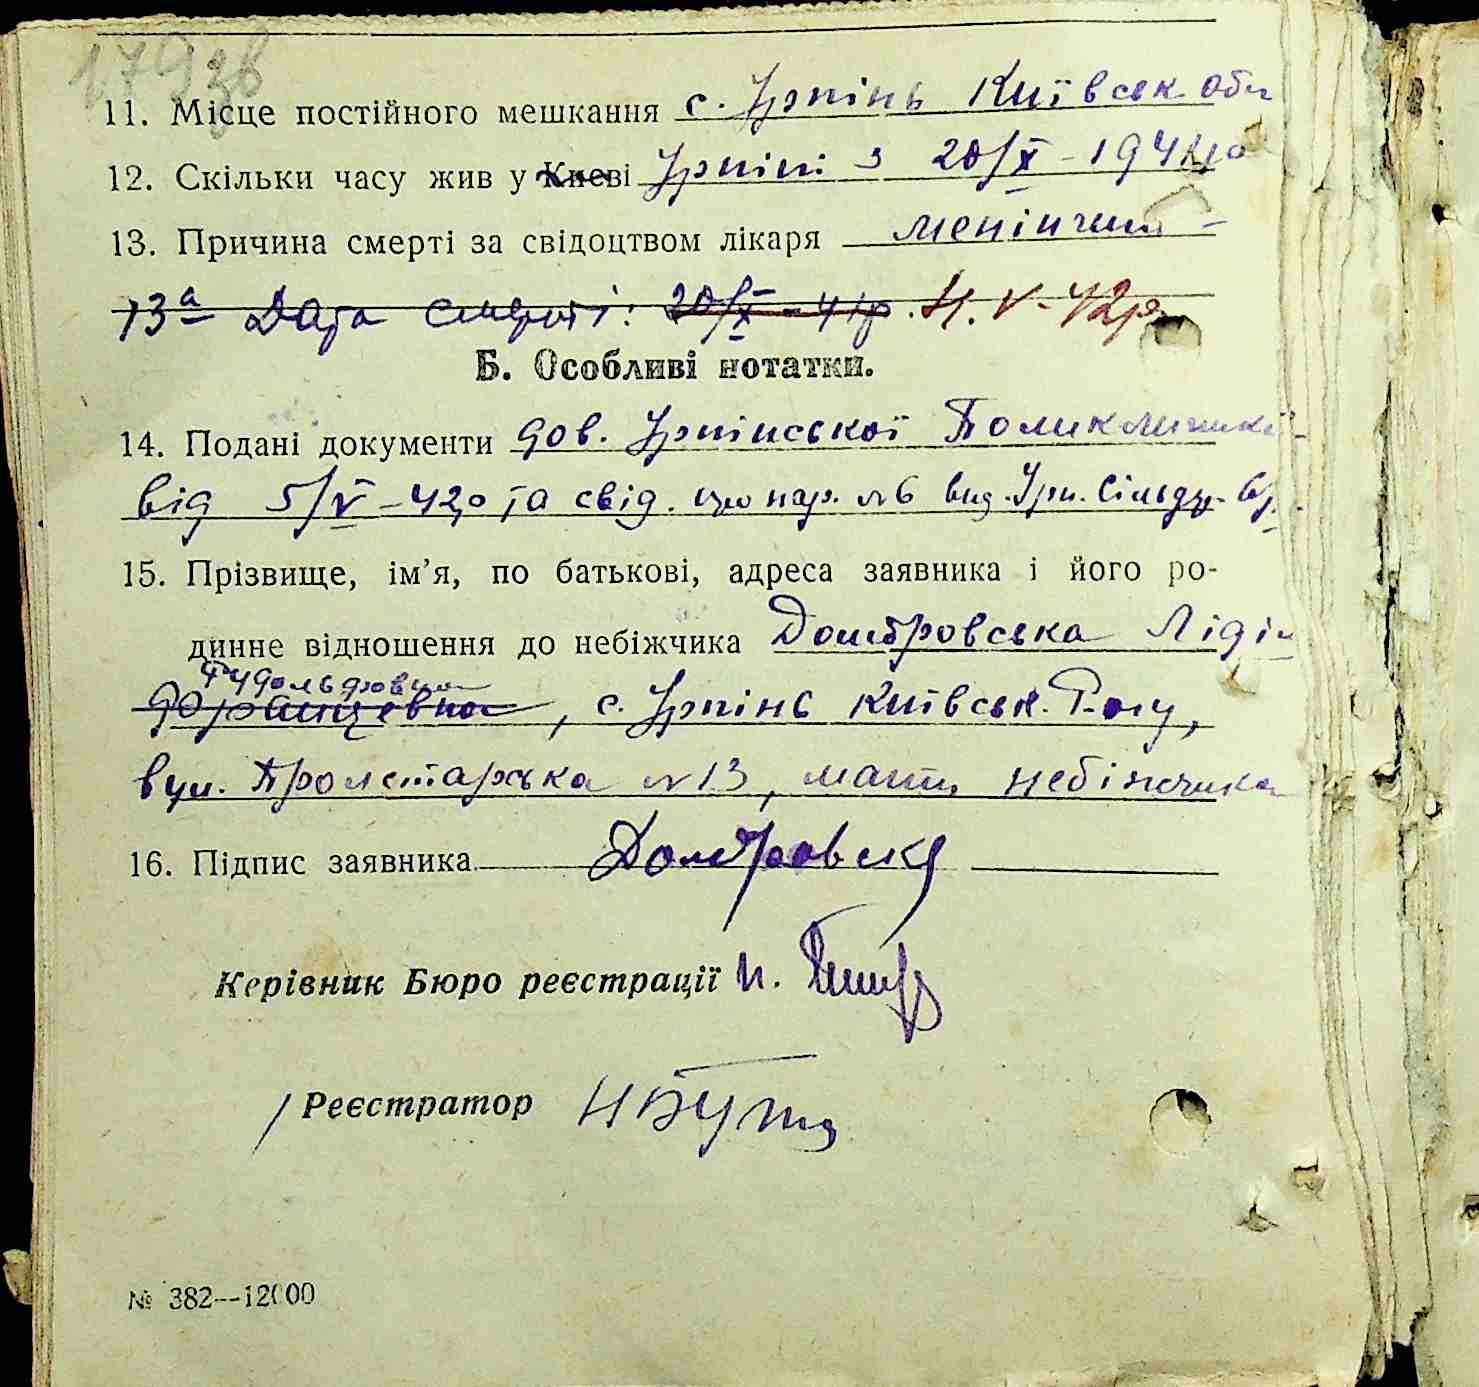 179зв
11. Місце постійного мешкання с. Ірпінь Київськ. Обл
12. Скільки часу жив у Києві Ірпіні з 20/X - 1941р
13. Причина смерті за свідоцтвом лікаря менінгит -
13а Дата смерті: 20/X - 41р. 4. V - 42р.
Б. Особливі нотатки.
14. Подані документи дов. Ірпінської Поликлиники
від 5/V - 42р та свід. про нар. №6 вид. Ірп. Сільдр.
15. Прізвище, ім'я, по батькові, адреса заявника і його ро-
динне відношення до небіжчика Домбровська Лідія
Рудольфовна
Францевна, с. Ірпінь Київськ. Р-ну,
вул. Пролетарська №13, мати небіжчика
16. Підпис заявника Домбровска
Керівник Бюро реєстрації
Реєстратор
№ 382--12000